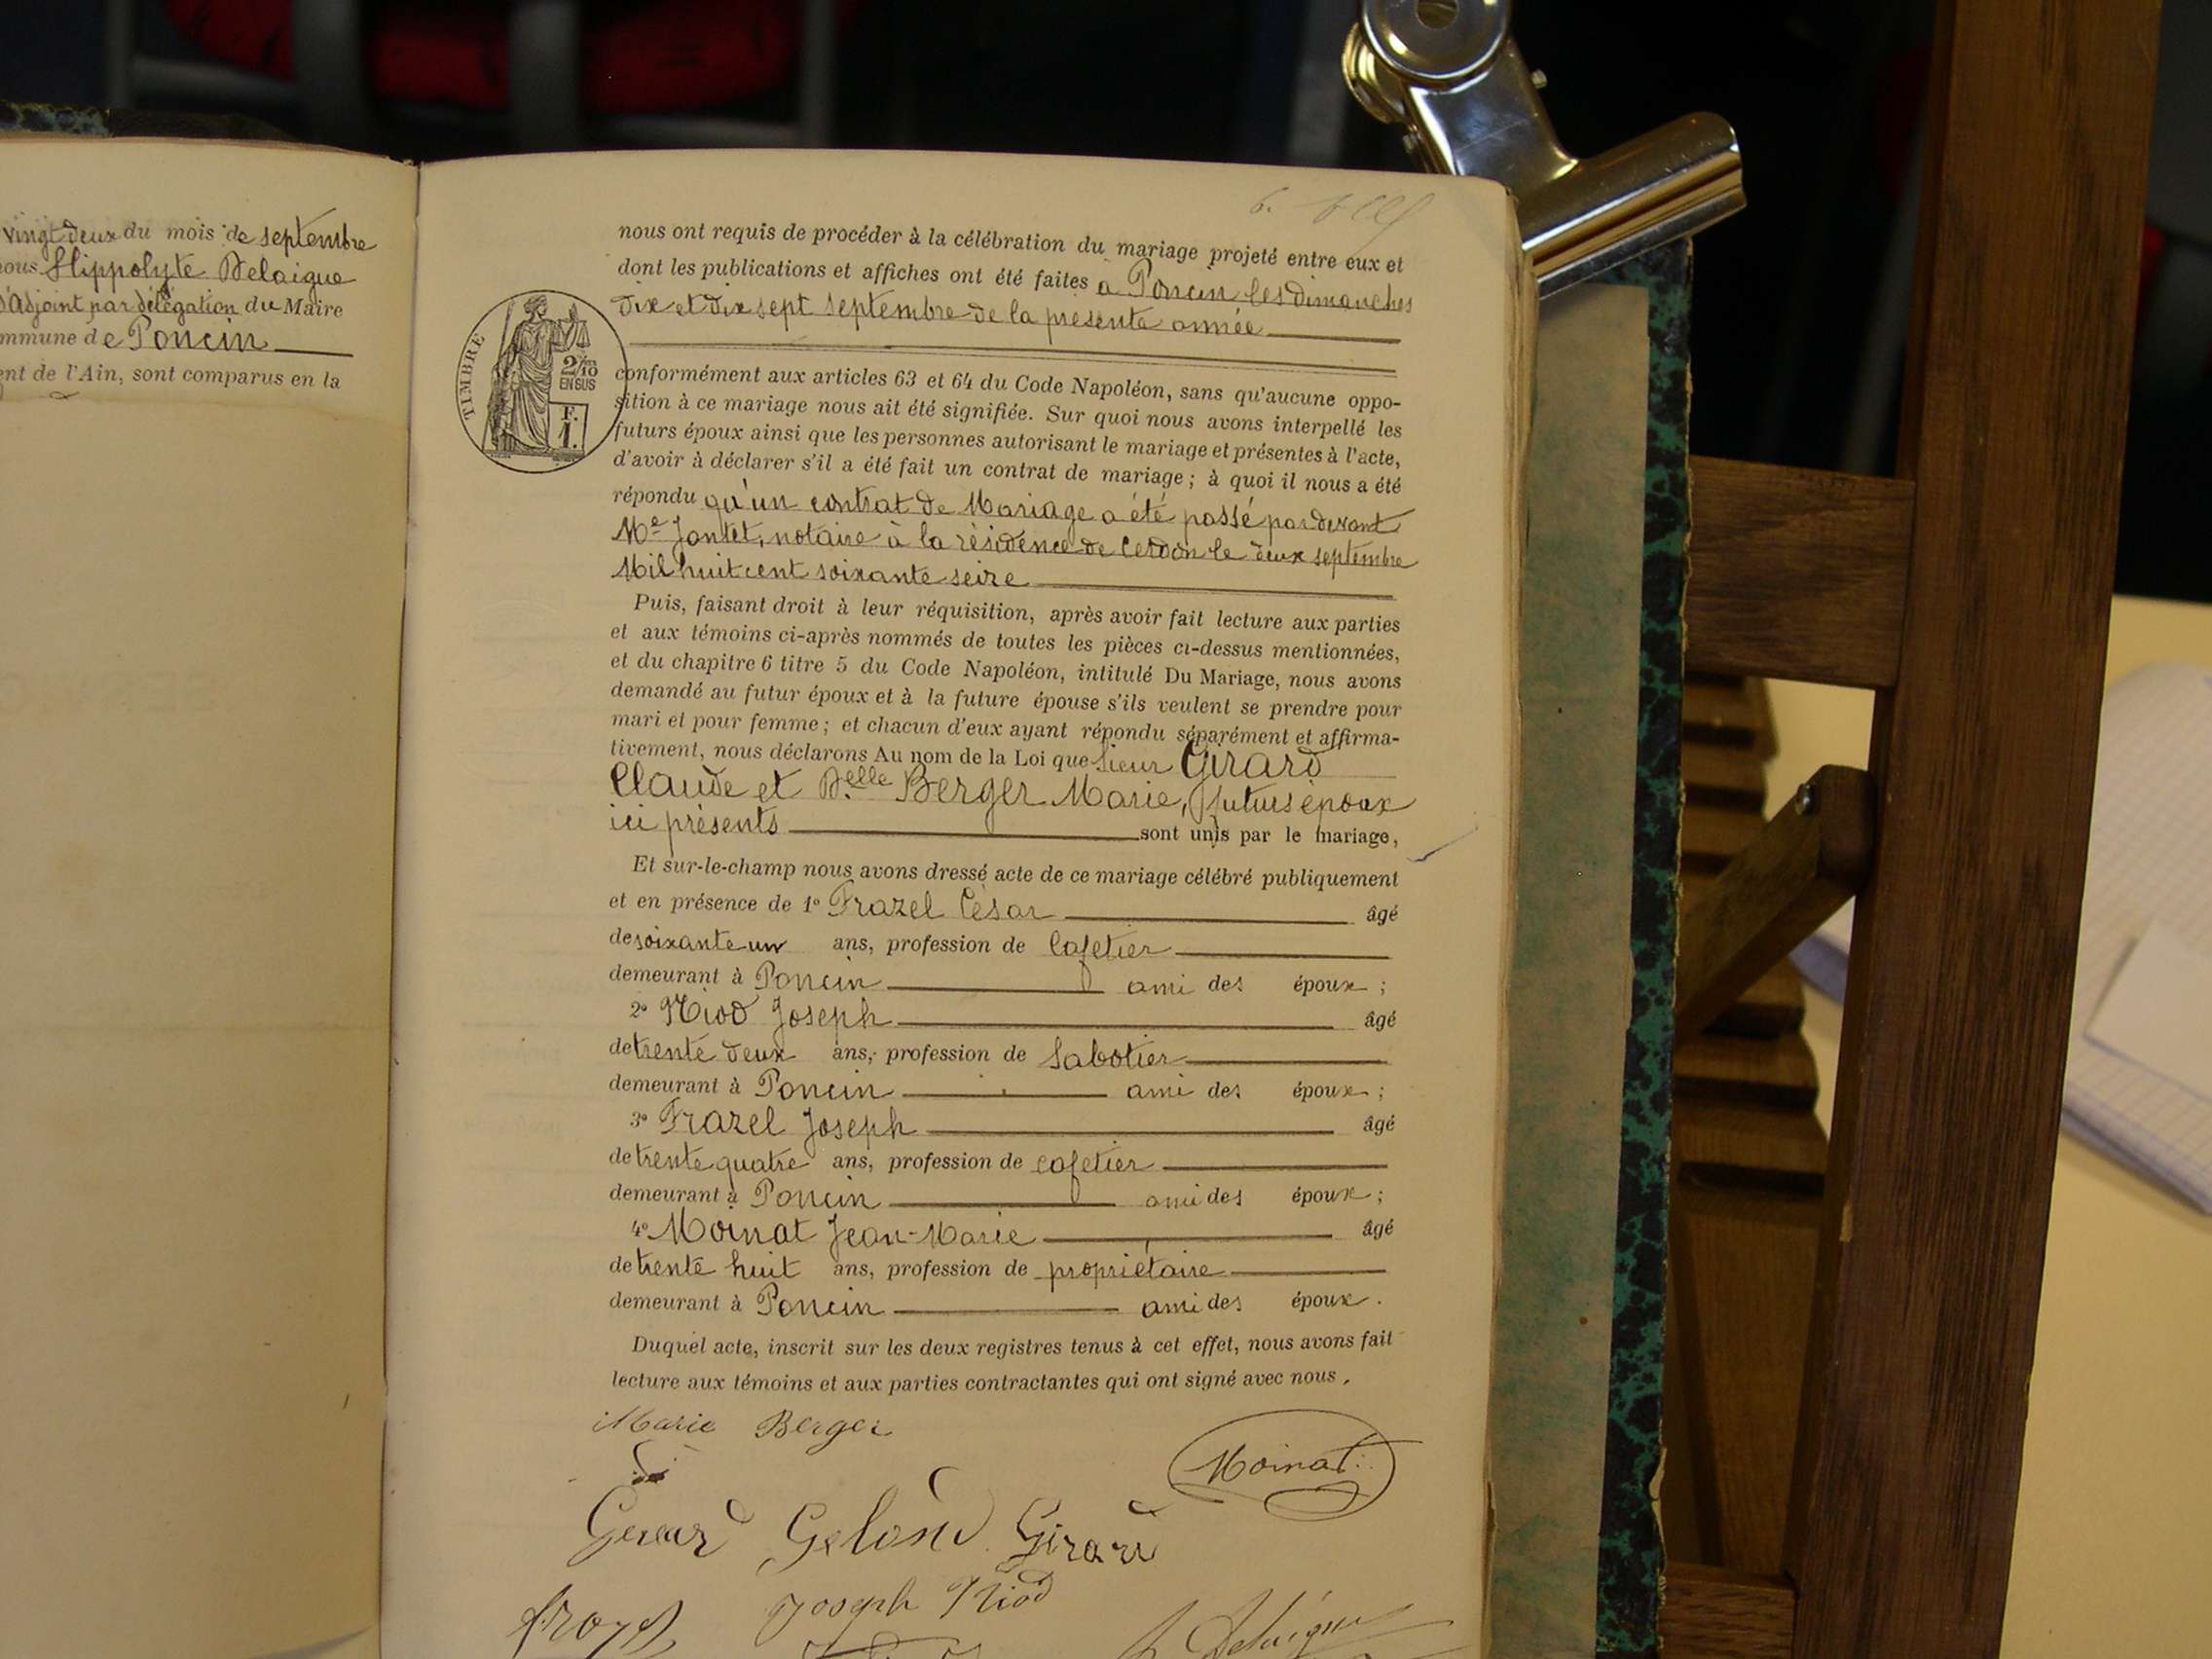 vingt deux du mois de septembre
nous Hippolyte Delaigue
d'adjoint par délégation du Maire
mmune de Poncin
ent de l'Ain, sont comparus en la
6.
nous ont requis de procéder à la célébration du mariage projeté entre eux et
dont les publications et affiches ont été faites à Poncin les dimanches
dix et dix sept septembre de la présente année
TIMBRE
2/10
EN SUS
F.
1.
conformément aux articles 63 et 64 du Code Napoléon, sans qu'aucune oppo-
sition à ce mariage nous ait été signifiée. Sur quoi nous avons interpellé les
futurs époux ainsi que les personnes autorisant le mariage et présentes à l'acte,
d'avoir à déclarer s'il a été fait un contrat de mariage ; à quoi il nous a été
répondu qu'un contrat de Mariage a été passé par devant
Me Jantet, notaire à la résidence de Cerdon le deux septembre
Mil huit cent soixante seize
Puis, faisant droit à leur réquisition, après avoir fait lecture aux parties
et aux témoins ci-après nommés de toutes les pièces ci-dessus mentionnées,
et du chapitre 6 titre 5 du Code Napoléon, intitulé Du Mariage, nous avons
demandé au futur époux et à la future épouse s'ils veulent se prendre pour
mari et pour femme ; et chacun d'eux ayant répondu séparément et affirma-
tivement, nous déclarons Au nom de la Loi que Sieur Girard
Claude et Delle Berger Marie, futurs époux
ici présents sont unis par le mariage,
Et sur-le-champ nous avons dressé acte de ce mariage célébré publiquement
et en présence de 1º Frazel César âgé
de soixante un ans, profession de Cafetier
demeurant à Poncin ami des époux ;
2º Niod Joseph âgé
de trente deux ans, profession de Sabotier
demeurant à Poncin ami des époux ;
3º Frazel Joseph âgé
de trente quatre ans, profession de cafetier
demeurant à Poncin ami des époux ;
4º Moinat Jean-Marie âgé
de trente huit ans, profession de propriétaire
demeurant à Poncin ami des époux .
Duquel acte, inscrit sur les deux registres tenus à cet effet, nous avons fait
lecture aux témoins et aux parties contractantes qui ont signé avec nous .
Marie Berger
Moinat
Girard
Joseph Niod
Delaigue